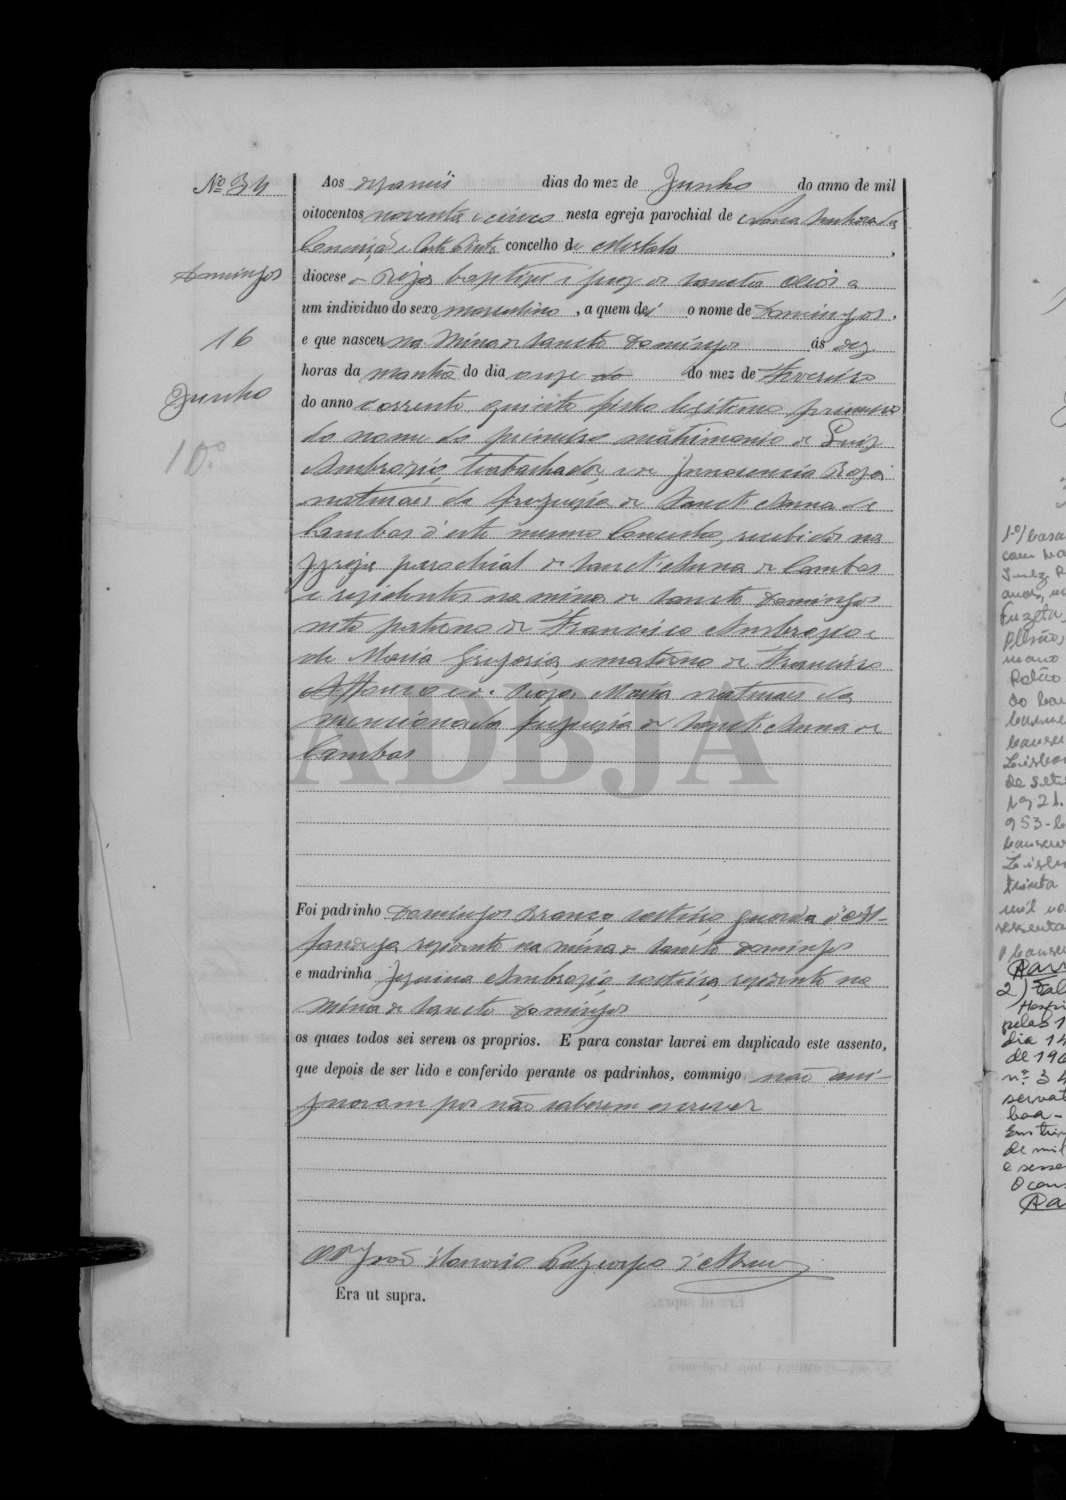 Nº 34
Domingos
16
Junho
10º
Aos dezaseis dias do mez de Junho do anno de mil
oitocentos noventa e cinco nesta egreja parochial de Nossa Senhora da
Conceição e Corte Pinto concelho de Mertola,
diocese de Beja baptizei e puz os Sanctos Oleos a
um individuo do sexo masculino, a quem dei o nome de Domingos,
e que nasceu na Mina de Sancto Domingos ás dez
horas da manhã do dia onze do do mez de Fevereiro
do anno corrente quinto filho legitimo primeiro
do nome do primeiro matrimonio de Luiz
Ambrozio, trabalhador, e de Innocencia Roza
naturaes da freguezia de Sanct'Anna de
Cambas d'este mesmo Concelho, recebidos na
Igreja parochial de Sanct'Anna de Cambas
e rezidentes na mina de Sancto Domingos
neto paterno de Francisco Ambrozio e
de Maria Gregoria, e materno de Francisco
Affonso e de Roza Maria naturaes da
mencionada freguezia de Sanct'Anna de
Cambas
ADBJA
Foi padrinho Domingos Branco, solteiro, guarda d'Al-
fandega rezidente na mina de Sancto Domingos
e madrinha Ambrozia, solteira, rezidente na
Mina de Sancto Domingos
os quaes todos sei serem os proprios. E para constar lavrei em duplicado este assento,
que depois de ser lido e conferido perante os padrinhos, commigo não assi-
gnaram por não saberem escrever
O P. João d'Abreu
Era ut supra.
1º) Casa
com
Fuzeta,
do
Lisboa
de Sete
1921.
953-
trinta
mil no
sessenta
2) Fal
Hospi
pelas 1
dia 14
de 196
nº 34
servat
boa-
Em tri
de mil
e sesse
O cons